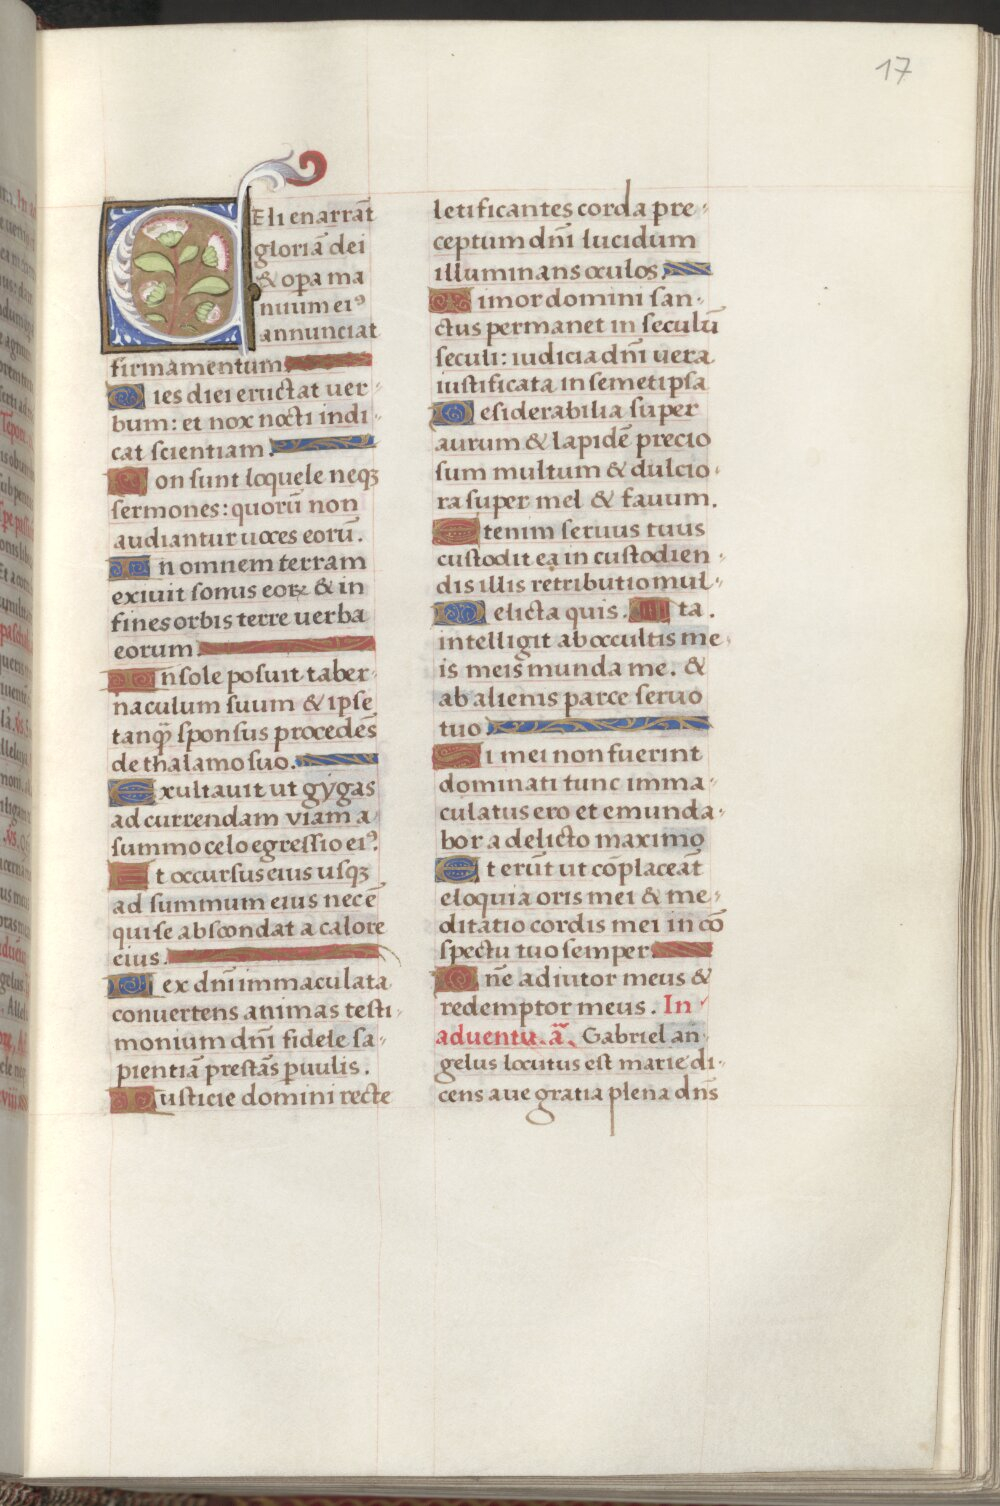 17
CEli enarrāt
gloriā dei
& oꝑa ma
nuum eiꝰ
annunciat
firmamentum
Dies diei eructat ver-
bum: et nox nocti indi-
cat scientiam.
Non sunt loquele neqꝫ
sermones: quorū non
audiantur uoces eorū.
In omnem terram
exiuit sonus eoꝝ & in
fines orbis terre uerba
eorum.
In sole posuit taber-
naculum suum & ipse
tanq̄ sponsus procedēs
de thalamo suo.
Exultauit ut gygas
ad currendam viam a
summo celo egressio eiꝰ.
Et occursus eius usqꝫ
ad summum eius nec ē
qui se abscondat a calore
eius.
Lex dn̄i immaculata
conuertens animas testi-
monium dn̄i fidele sa-
pientiā prestās ꝑuulis.
Iusticie domini recte
letificantes corda pre-
ceptum dn̄i lucidum
illuminans oculos.
Timor domini san-
ctus permanet in seculū
seculi: iudicia dn̄i uera
iustificata in semetipsa
Desiderabilia super
aurum & lapidē precio
sum multum & dulcio-
ra super mel & fauum.
Etenim seruus tuus
custodit ea in custodien-
dis illis retributio mul-
Delicta quis. ta.
intelligit ab occultis me-
is meis munda me. &
ab alienis parce seruo
tuo
Si mei non fuerint
dominati tunc imma-
culatus ero et emunda-
bor a delicto maximo
Et erūt ut cōplaceāt
eloquia oris mei & me-
ditatio cordis mei in cō
spectu tuo semper.
Dn̄e adiutor meus &
redemptor meus. In
aduentu. ā. Gabriel an-
gelus locutus est marie di-
cens aue gratia plena dn̄s